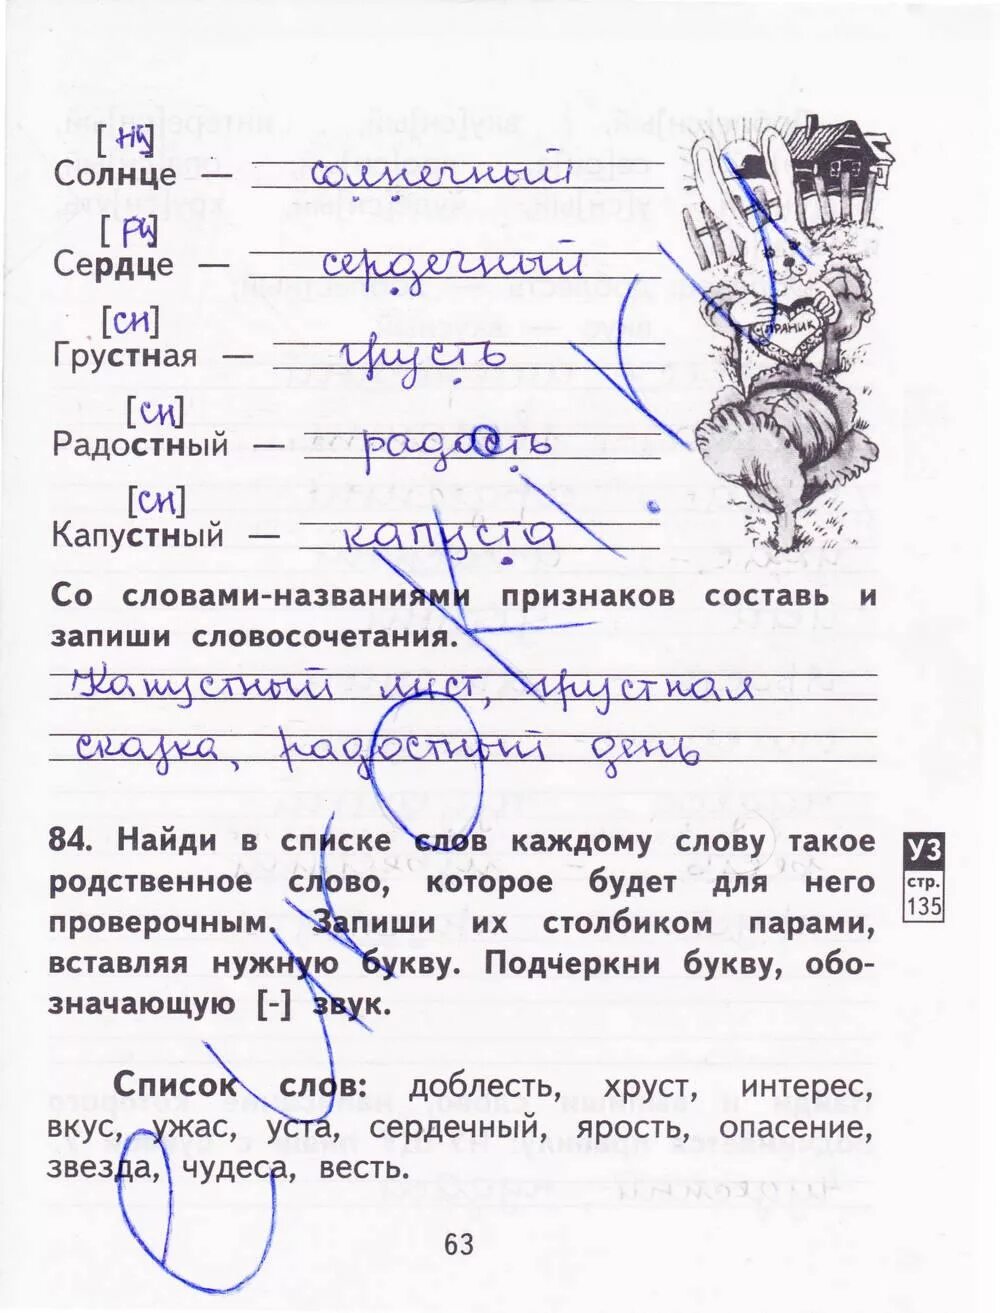 [нц]
Солнце — солнечный
[рц]
Сердце — сердечный
[сн]
Грустная — грусть
[сн]
Радостный — радость
[сн]
Капустный — капуста
ПРАНИК
Со словами-названиями признаков составь и
запиши словосочетания.
Капустный лист, грустная
сказка, радостный день
84. Найди в списке слов каждому слову такое
родственное слово, которое будет для него
проверочным. Запиши их столбиком парами,
вставляя нужную букву. Подчеркни букву, обо-
значающую [-] звук.
УЗ
стр.
135
Список слов: доблесть, хруст, интерес,
вкус, ужас, уста, сердечный, ярость, опасение,
звезда, чудеса, весть.
63